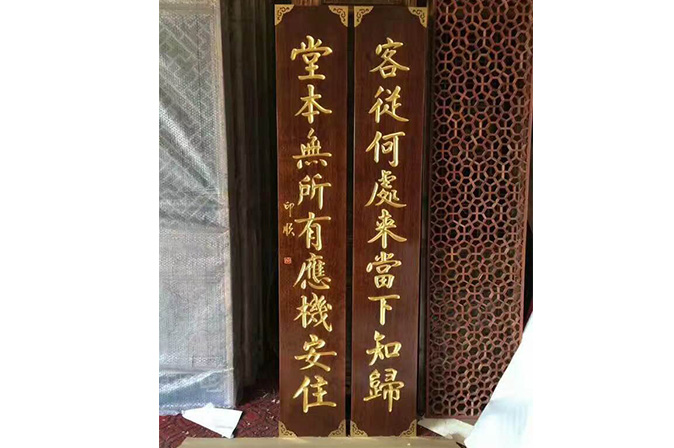 客從何處来當下知歸
堂本無所有應機安住
印順